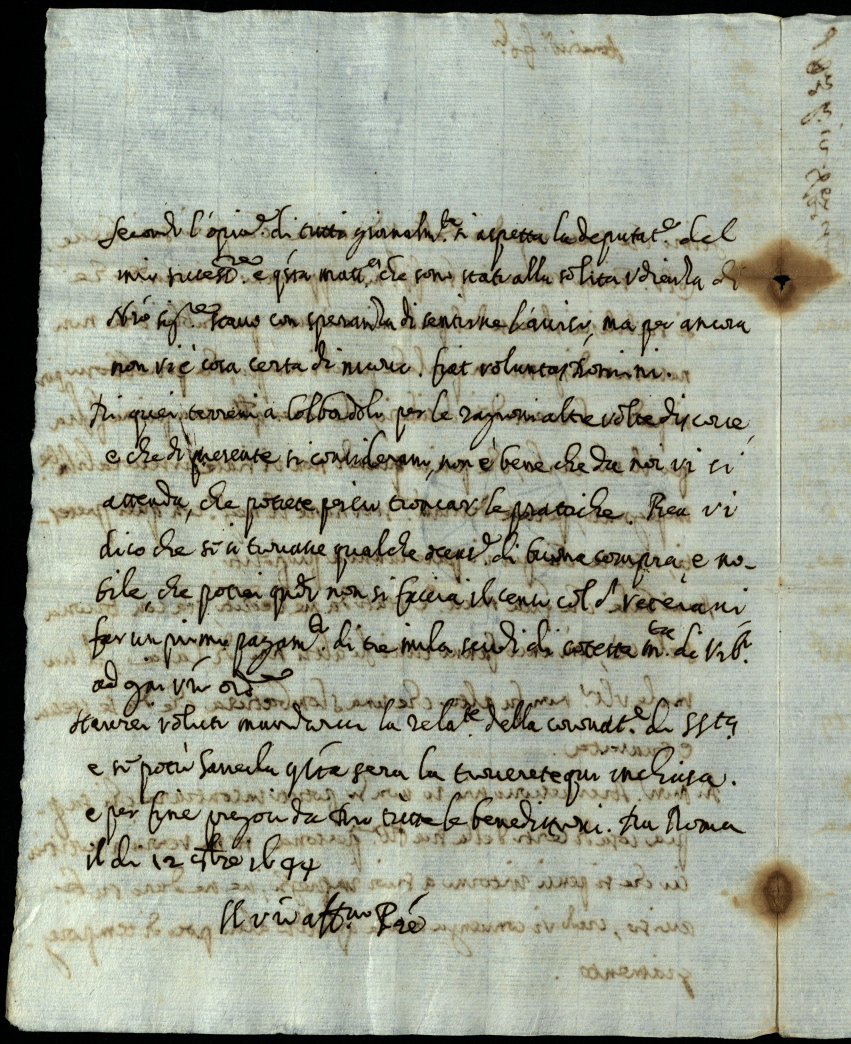 Secondo l'opin.e di tutti giornalm.te si aspetta la deputat.e del
mio sucess.re e q'sta matt.a che sono stato alla solita udienza di
N'ro Sig.re stavo con speranza di sentirne l'aviso, ma per ancora
non vi è cosa certa di nuovo. fiat voluntas Domini.
Di quei terreni a Colbordolo per le ragioni altre volte discorse,
e che di presente si considerano, non è bene che da noi vi si
attenda, che potrete perciò troncar le pratiche. Ben vi
dico che se si trovasse qualche occas.e di buona compra, e no-
bile, che potrei q'do non si faccia il censo col S.r Veterani
far un primo pagam.to di tre mila scudi di cotesta m.ta de Urb.o
ad ogni v'ro ord.e
Haverei voluto mandarvi la relat.e della coronat.e di SS.tà
e se potrò haverla q'sta sera la troverete qui inclusa.
e per fine prego da Dio tutte le beneditioni. Da Roma
il di 12 8bre 1644
Il v'ro aff.mo P're